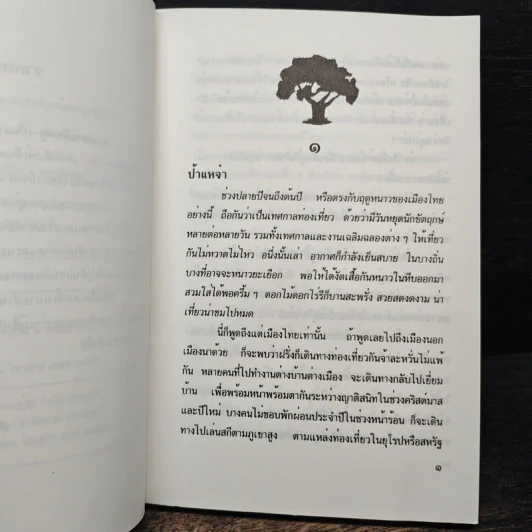 ๑
ป้าแหจ๋า
ช่วงปลายปีจนถึงต้นปี หรือตรงกับฤดูหนาวของเมืองไทย
อย่างนี้ ถือกันว่าเป็นเทศกาลท่องเที่ยว ด้วยว่ามีวันหยุดนักขัตฤกษ์
หลายต่อหลายวัน รวมทั้งเทศกาลและงานเฉลิมฉลองต่าง ๆ ให้เที่ยว
กันไม่หวาดไม่ไหว อนึ่งนั้นเล่า อากาศก็กำลังเย็นสบาย ในบางถิ่น
บางที่อาจจะหนาวยะเยือก พอให้ได้งัดเสื้อกันหนาวในหีบออกมา
สวมใส่ได้พอครึ้ม ๆ ดอกไม้ดอกไร่รึก็บานสะพรั่ง สวยสดงดงาม น่า
เที่ยวน่าชมไปหมด
นี่ก็พูดถึงแต่เมืองไทยเท่านั้น ถ้าพูดเลยไปถึงเมืองนอก
เมืองนาด้วย ก็จะพบว่าฝรั่งก็เดินทางท่องเที่ยวกันจ้าละหวั่นไม่แพ้
กัน หลายคนที่ไปทำงานต่างบ้านต่างเมือง จะเดินทางกลับไปเยี่ยม
บ้าน เพื่อพร้อมหน้าพร้อมตากันระหว่างญาติสนิทในช่วงคริสต์มาส
และปีใหม่ บางคนไม่ชอบพักผ่อนประจำปีในช่วงหน้าร้อน ก็จะเดิน
ทางไปเล่นสกีตามภูเขาสูง ตามแหล่งท่องเที่ยวในยุโรปหรือสหรัฐ
๑